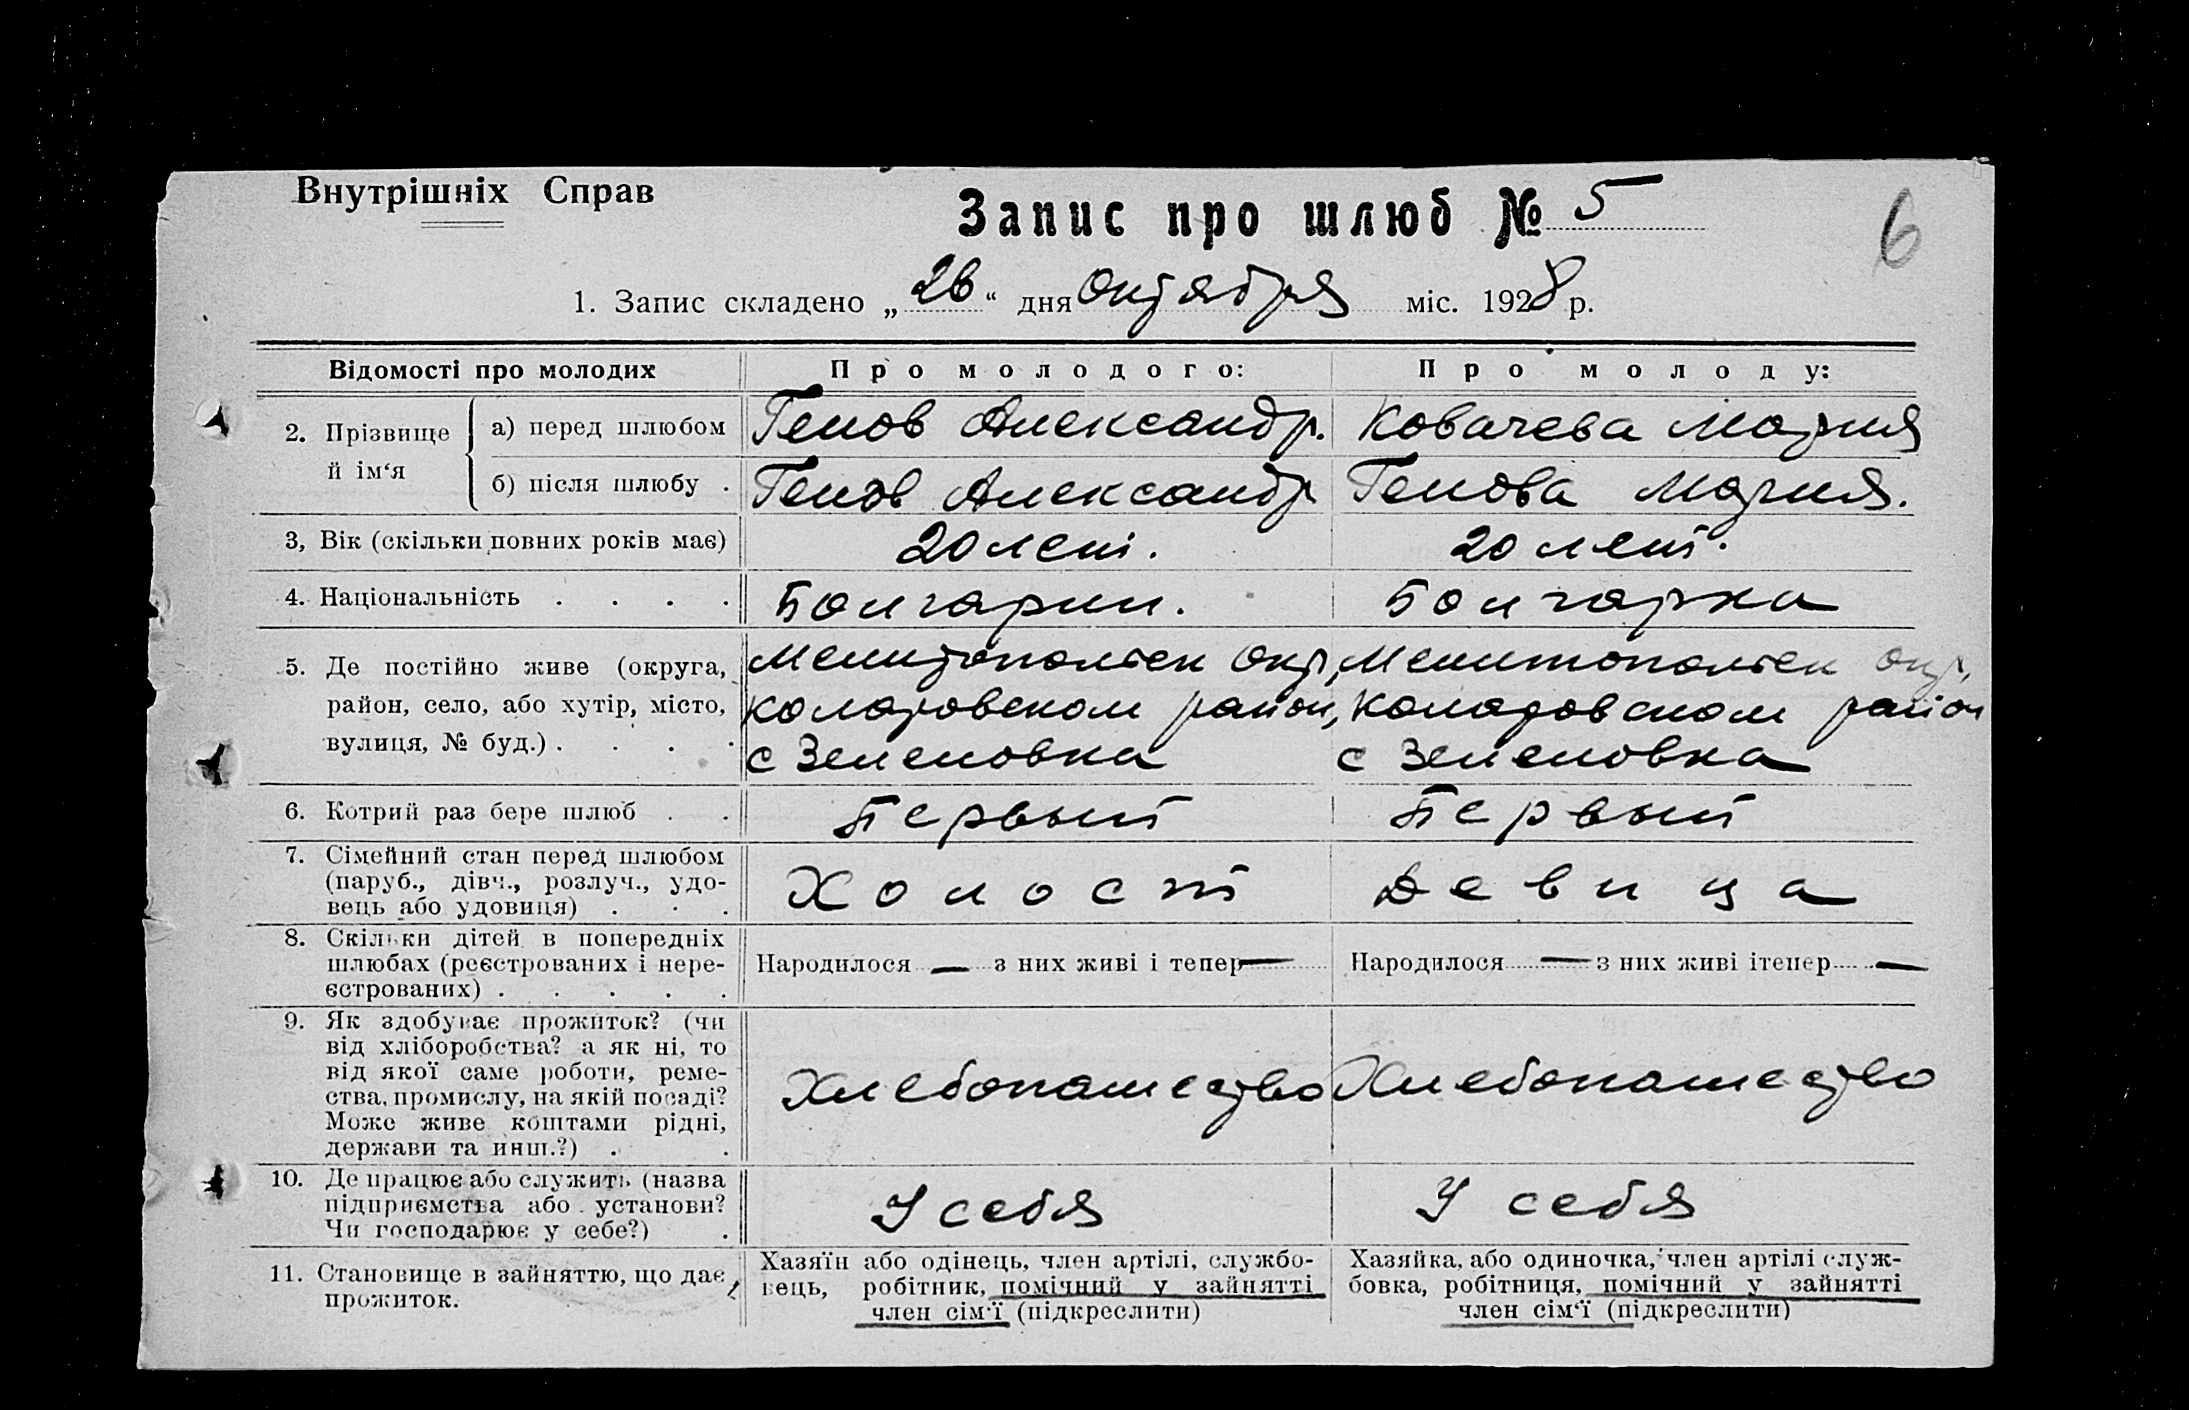 Внутрішніх Справ
Запис про шлюб № 5
6
1. Запис складено „26“ дня октября міс. 1928 р.
Відомості про молодих
Про молодого:
Про молоду:
2. Прізвище й ім‘я
а) перед шлюбом
Генов Александр.
Ковачева Мария
б) після шлюбу .
Генов Александр
Генова Мария.
3, Вік (скільки повних років має)
20 лет.
20 лет.
4. Національність . . . .
Болгарин.
Болгарка
5. Де постійно живе (округа,
район, село, або хутір, місто,
вулиця, № буд.) . . . .
Мелитопольск окр,
Коларовском район,
с Зеленовка
Мелитопольск окр,
Коларовском район
с Зеленовка
6. Котрий раз бере шлюб . .
Первый
Первый
7. Сімейний стан перед шлюбом
(паруб., дівч., розлуч., удо-
вець або удовиця) . . .
Холост
Девица
8. Скільки дітей в попередніх
шлюбах (реєстрованих і нере-
єстрованих) . . . . .
Народилося — з них живі і тепер —
Народилося — з них живі ітепер —
9. Як здобуває прожиток? (чи
від хліборобства? а як ні, то
від якої саме роботи, реме-
ства, промислу, на якій посаді?
Може живе коштами рідні,
держави та инш.?) . .
Хлебопашество
Хлебопашество
10. Де працює або служить (назва
підприємства або установи?
Чи господарює у себе?) .
У себя
У себя
11. Становище в зайняттю, що дає
прожиток.
Хазяїн або одінець, член артілі, службо-
вець, робітник, помічний у зайнятті
член сім‘ї (підкреслити)
Хазяйка, або одиночка, член артілі служ-
бовка, робітниця, помічний у зайнятті
член сім‘ї (підкреслити)